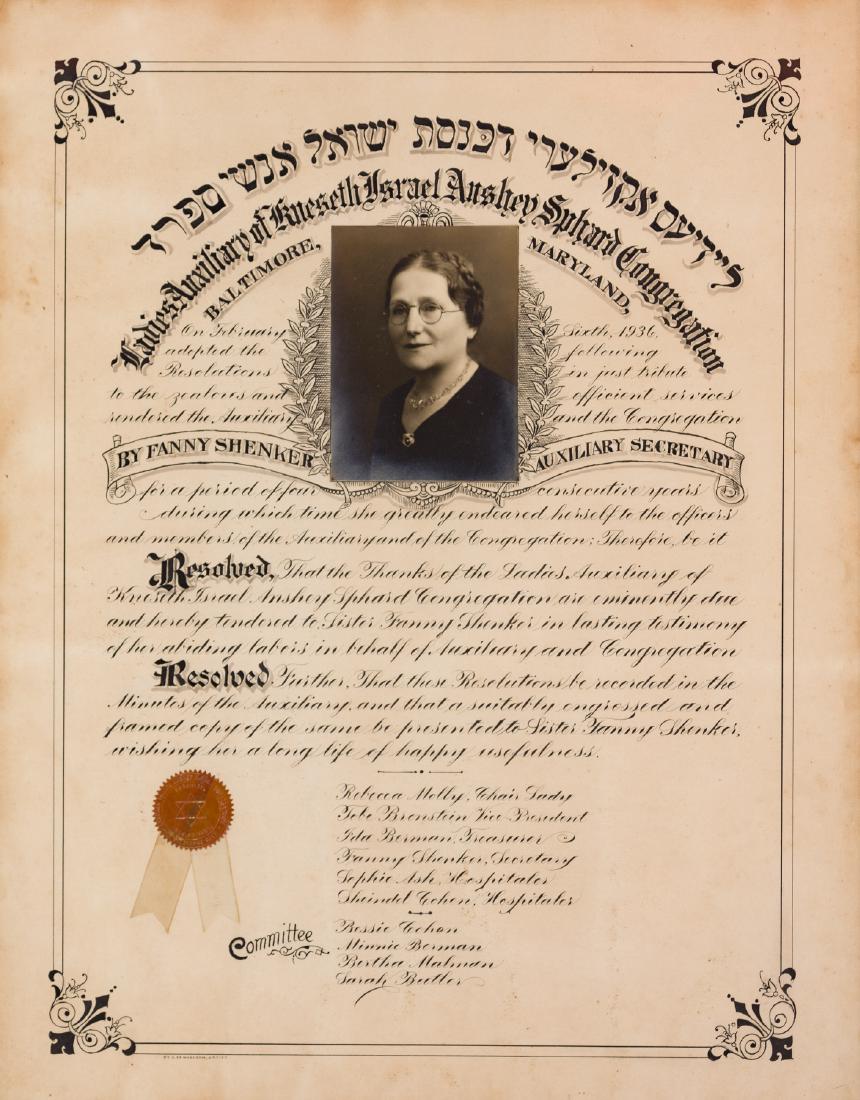 לײדיעס אקזילערי דכנסת ישראל אנשי ספרד
Ladies Auxiliary of Kneseth Israel Anshey Sphard Congregation
BALTIMORE, MARYLAND,
On February Sixth, 1936,
adopted the following
Resolutions in just tribute
to the zealous and efficient services
rendered the Auxiliary and the Congregation
BY FANNY SHENKER AUXILIARY SECRETARY
for a period of four consecutive years
during which time she greatly endeared herself to the officers
and members of the Auxiliary and of the Congregation; Therefore, be it
Resolved, That the Thanks of the Ladies Auxiliary of
Kneseth Israel Anshey Sphard Congregation are eminently due
and hereby tendered to Sister Fanny Shenker in lasting testimony
of her abiding labors in behalf of Auxiliary and Congregation
Resolved Further, That these Resolutions be recorded in the
Minutes of the Auxiliary, and that a suitably engrossed and
framed copy of the same be presented to Sister Fanny Shenker,
wishing her a long life of happy usefulness.
Rebecca Molly, Chair Lady
Tobe Bronstein Vice President
Ida Berman, Treasurer
Fanny Shenker, Secretary
Sophie Ash, Hospitaler
Sheindel Cohen, Hospitaler
Committee
Bessie Cohan
Minnie Berman
Bertha Malman
Sarah Butler